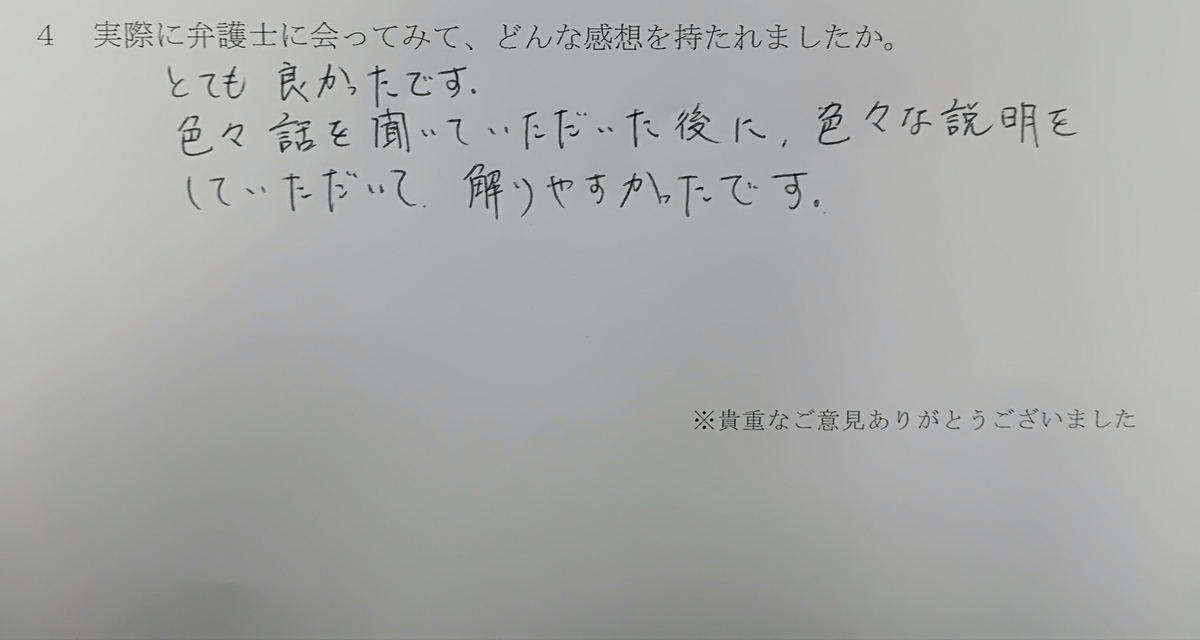 4 実際に弁護士に会ってみて、どんな感想を持たれましたか。
とても良かったです.
色々話を聞いていただいた後に,色々な説明を
していただいて.解りやすかったです。
※貴重なご意見ありがとうございました